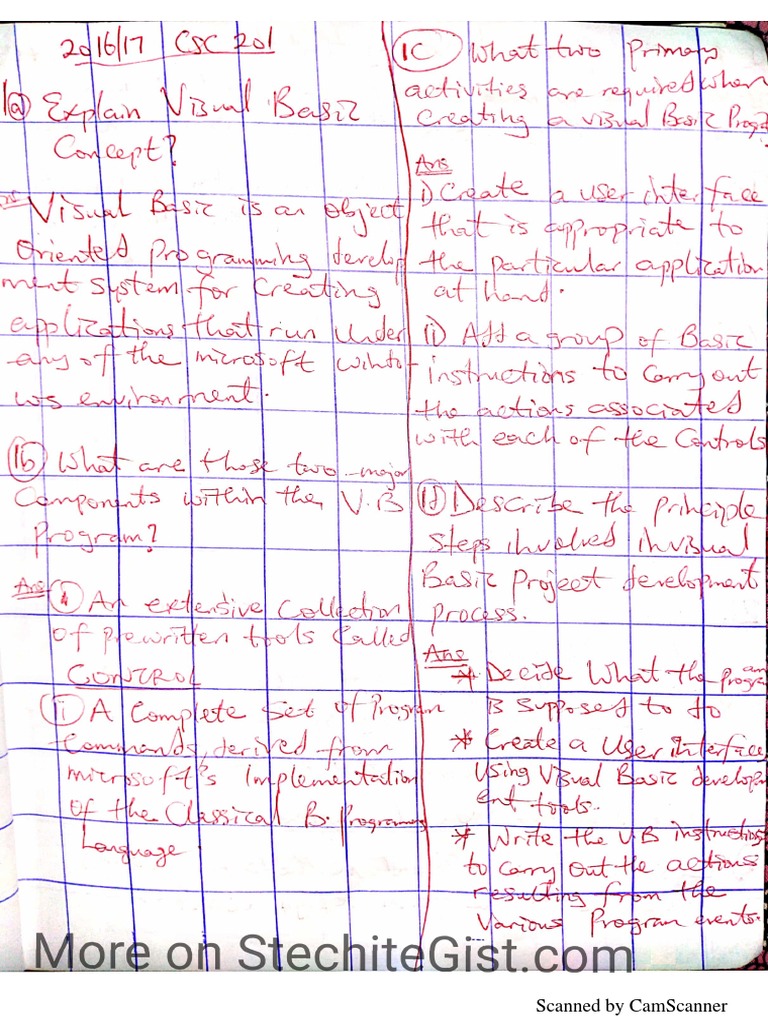 2016/17 CSC 201
1(a) Explain Visual Basic
Concept?
Ans
Visual Basic is an object
oriented programming develop
ment system for creating
applications that run under
any of the microsoft windo-
ws environment.
(1b) What are those two major
Components within the V.B
Program?
Ans (i) An extensive Collection
of prewritten tools Called
CONTROL
(ii) A Complete Set of Program
Commands, derived from
microsoft's Implementation
of the Classical B. Programing
Language
(1C) What two Primary
activities are required when
creating a visual Basic Prog?
Ans
i) Create a user interface
that is appropriate to
the particular application
at hand.
(ii) Add a group of Basic
instructions to carry out
the actions associated
with each of the Controls
(1d) Describe the principle
steps involved in visual
Basic Project development
process.
Ans
* Decide What the program
is supposed to do
* Create a User Interface,
Using Visual Basic developm
ent tools.
* Write the V.B instructions
to carry out the actions
resulting from the
Various Program events.
More on StechiteGist.com
Scanned by CamScanner